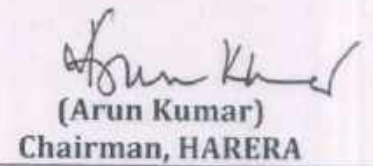 Arun Kumar
(Arun Kumar)
Chairman, HARERA